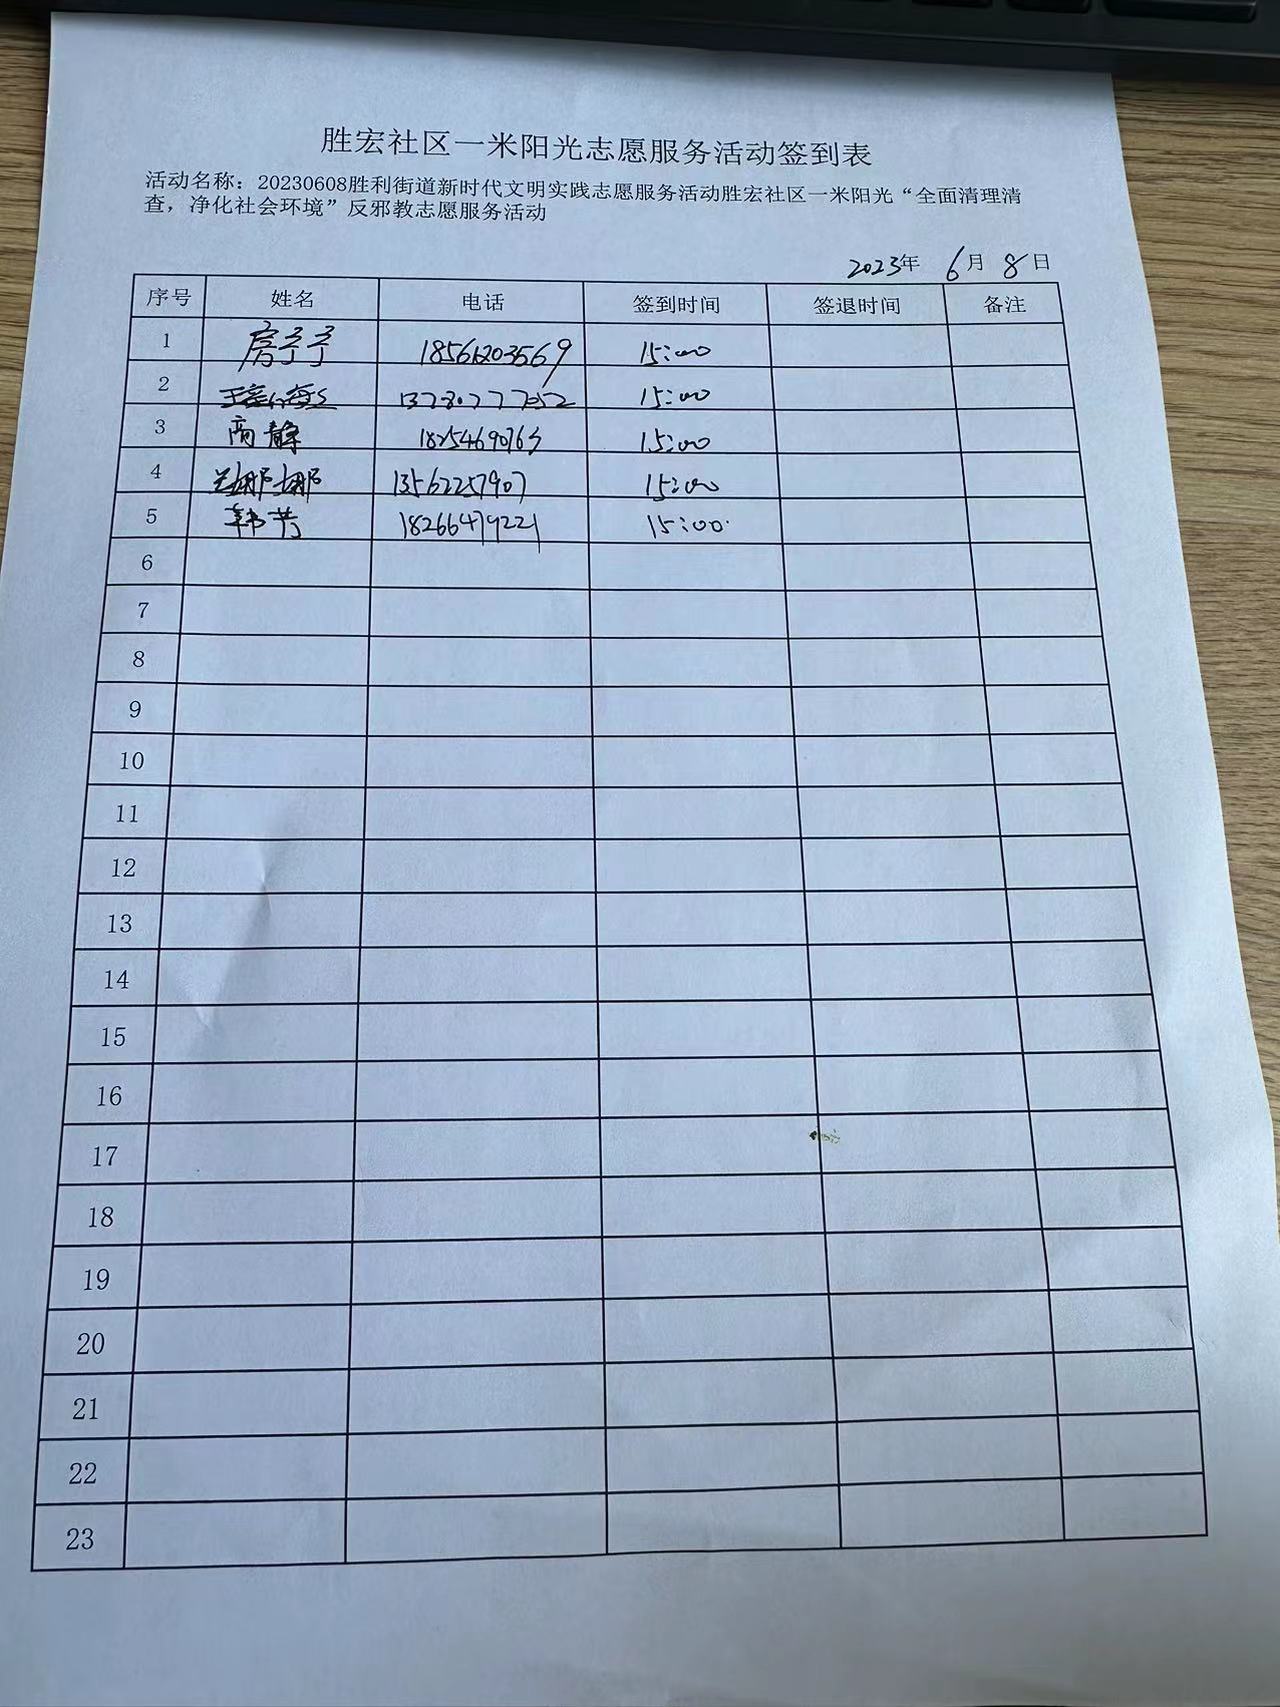 胜宏社区一米阳光志愿服务活动签到表
活动名称：20230608胜利街道新时代文明实践志愿服务活动胜宏社区一米阳光“全面清理清
查，净化社会环境”反邪教志愿服务活动
2023年 6月 8日
序号 姓名 电话 签到时间 签退时间 备注
1 房 18561203569 15:00
2 13780777052 15:00
3 高静 18254690763 15:00
4 兰娜娜 13562257907 15:00
5 韩芳 18266479221 15:00
6
7
8
9
10
11
12
13
14
15
16
17
18
19
20
21
22
23